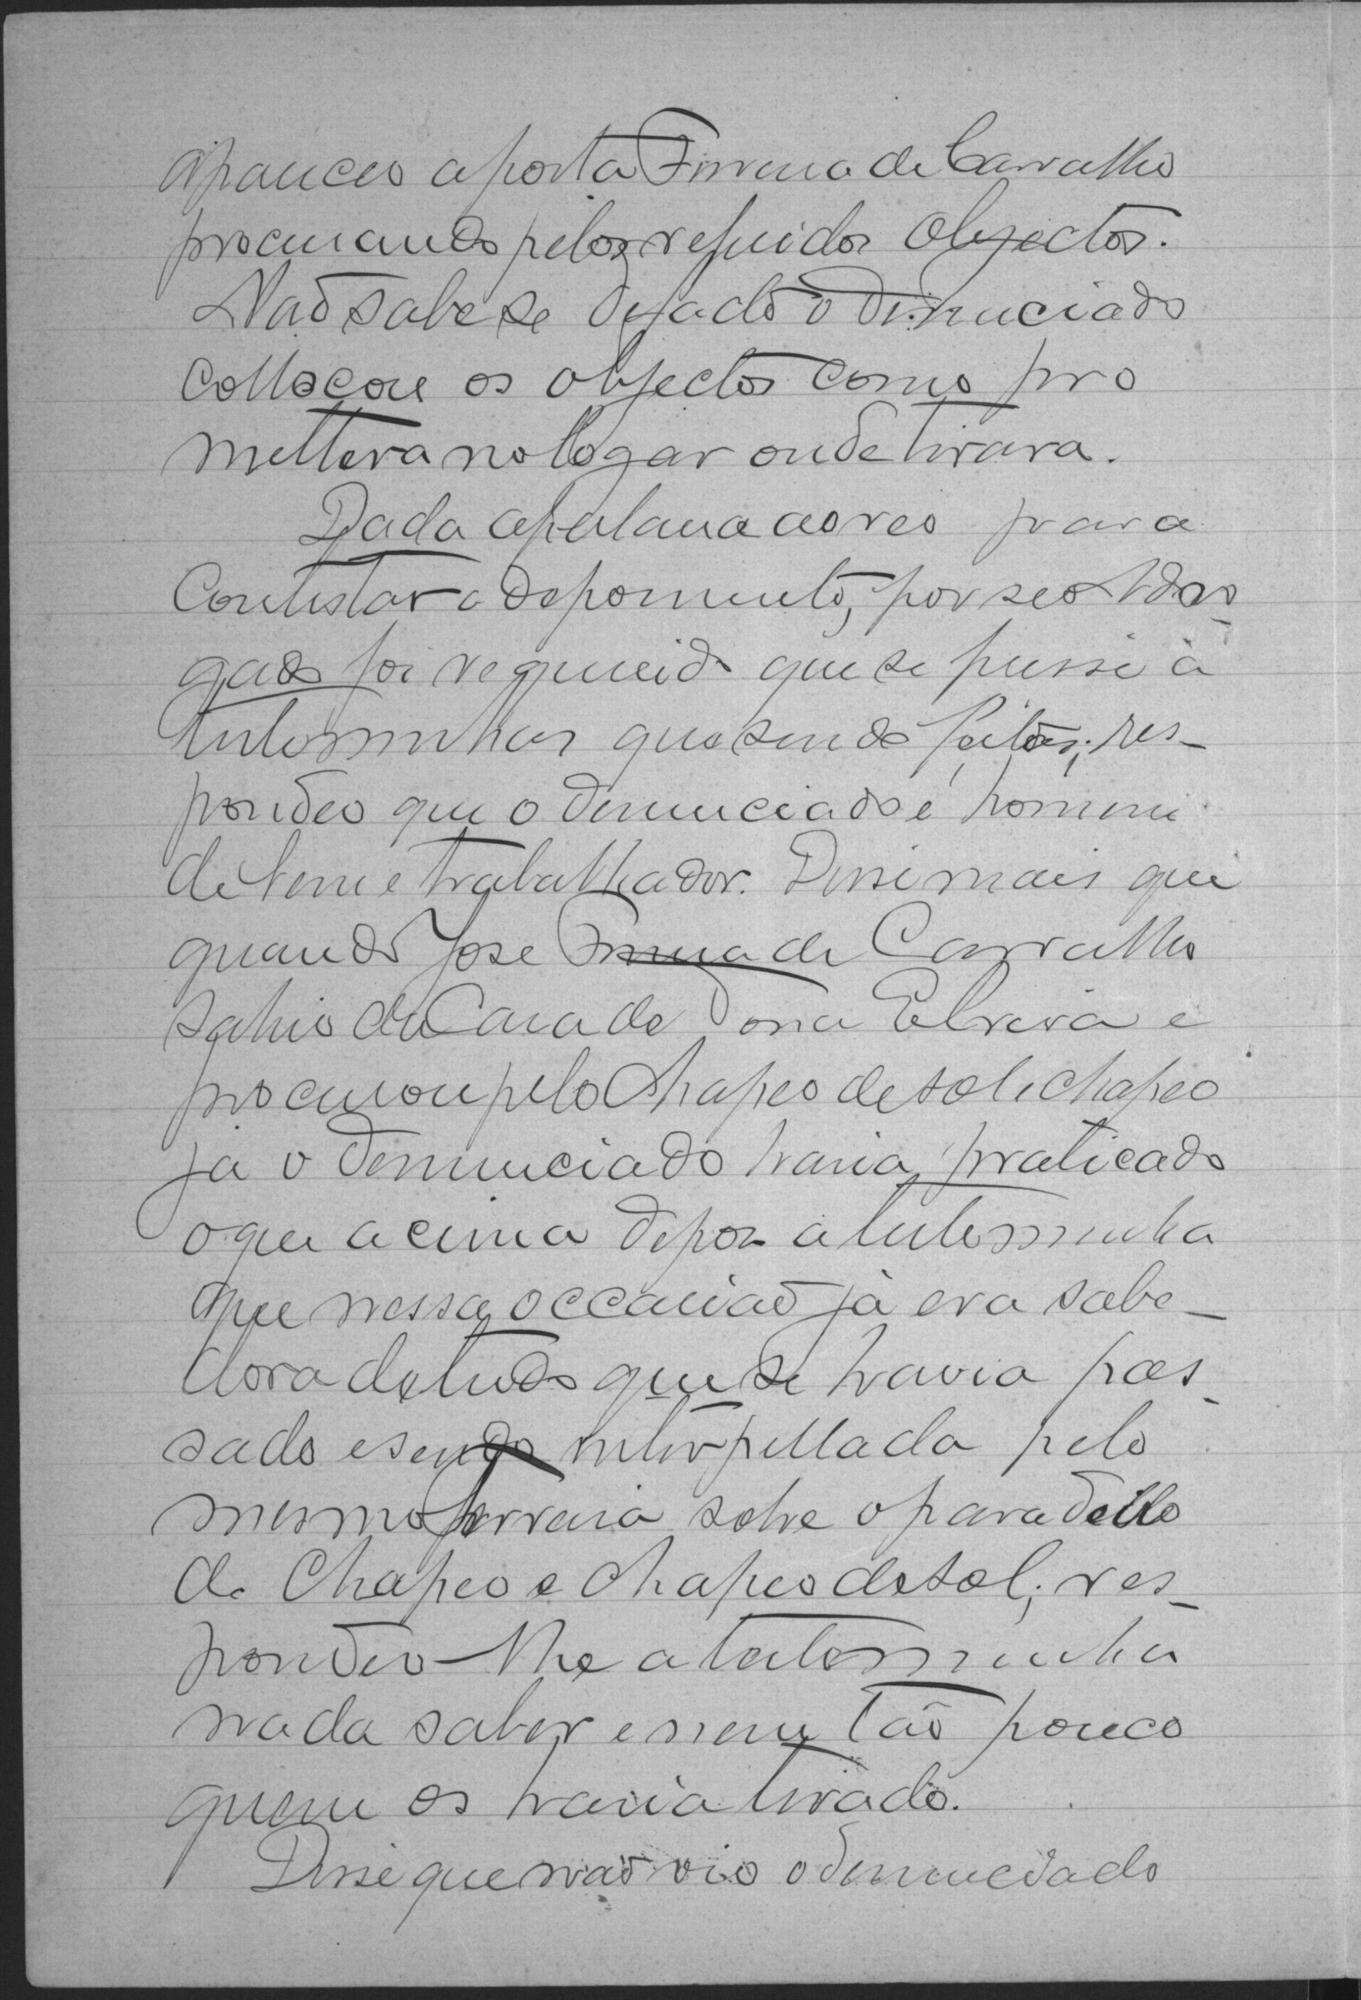 appareceo a porta Ferreira de Carvalho
procurando pelos referidos objectos.
Não sabe se de facto o denunciado
collocou os objectos como pro
mettera no logar onde tirara.
Dada a palavra ao reo para
Contestar o depoimento, por seo Advo
gado foi requerido que se fizesse à
testemunhas que sendo feitas; res-
pondeo que o denunciado é homem
de bem e trabalhador. Disse mais que
quando José Ferreira de Carvalho
sahio da Casa de Dona Elvira e
procurou pelo Chapeo de sol e chapeo
já o denunciado havia praticado
o que acima depoz a testemunha
que nessa occasião já era sabe-
dora de tudo que se havia pas-
sado e sendo interpellada pelo
mesmo Ferreira sobre o paradeiro
de Chapeo e chapeo de sol; res-
pondeo-lhe a testemunha
nada saber e nem tão pouco
quem os havia tirado.
Disse que não vio o denunciado